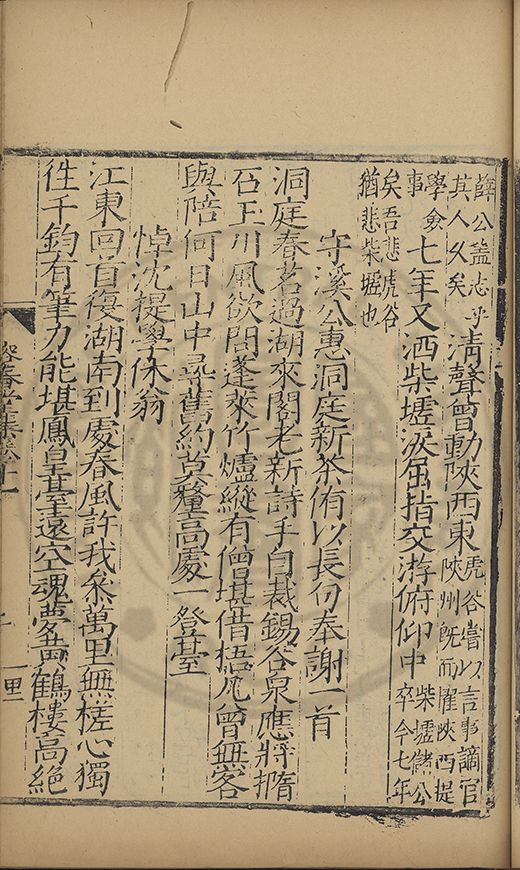 薛公蓋志乎
其人乆矣
清聲曾動陝西東
虎谷嘗以言事謫官
陝州旣而擢陝西提
學僉
事
七年又洒柴墟淚屈指交游俯仰中
柴墟儲公
卒今七年
矣吾悲虎谷
猶悲柴墟也
守溪公惠洞庭新茶侑以長句奉謝一首
洞庭春茗過湖來閣老新詩手自裁錫谷泉應將擕
石玉川風欲問蓬萊竹爐縱有僧堪借梧凡曾無客
與陪何日山中尋舊約莫釐高處一登臺
悼沈提學休翁
江東回首復湖南到處春風許我叅萬里無槎心獨
徃千鈞有筆力能堪鳳皇臺遠空魂夢黃鶴樓高絕
春堂集